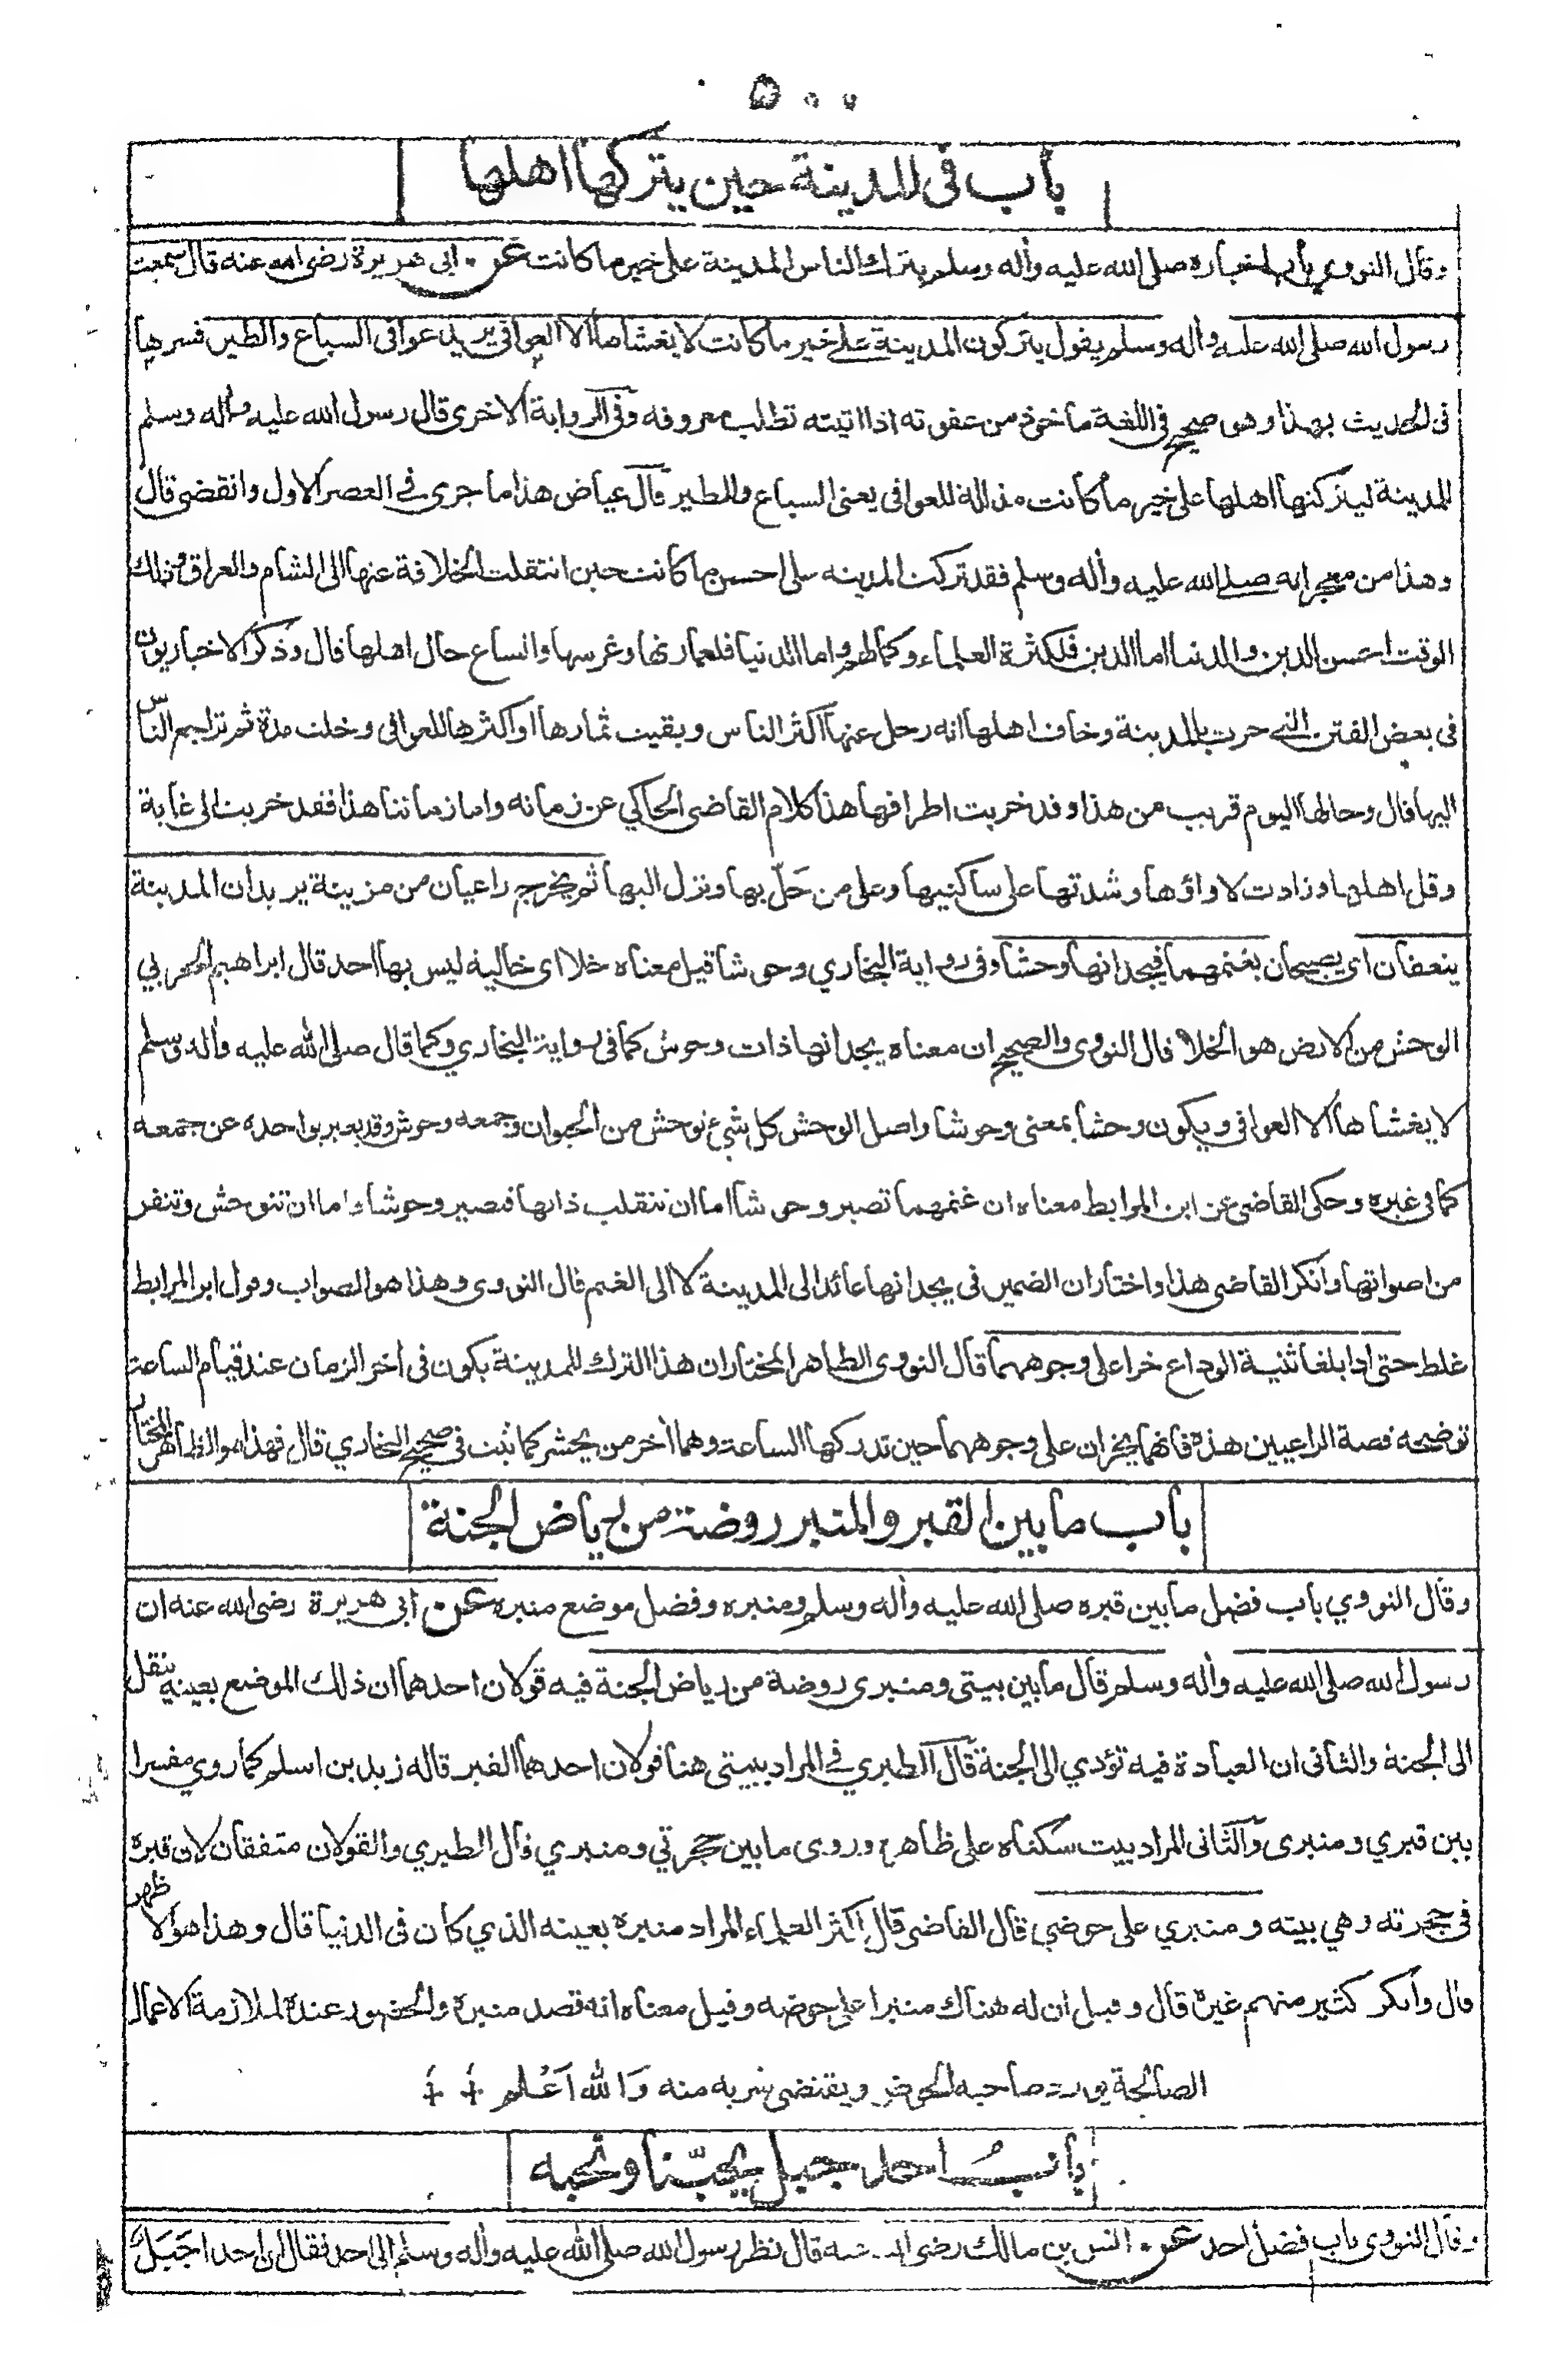 ٥٠٠
باب فى المدينة حين يتركها اهلها
وقال النووي باب اخباره صلى الله عليه وأله وسلم بترك الناس المدينة على خير ما كانت عن ابى هريرة رضى الله عنه قال سمعت
رسول الله صلى الله عليه وأله وسلم يقول يتركون المدينة على خير ما كانت لا يغشاها الا العوافى يريد عوافى السباع والطير فسرها
فى الحديث بهذا وهو صحيح فى اللغة ماخوذ من عفوته اذا اتيته تطلب معروفه وفى الرواية الاخرى قال رسول الله عليه وأله وسلم
للمدينة ليتركنها اهلها على خير ما كانت مذللة للعوافى يعنى السباع والطير قال عياض هذا ما جرى فى العصر الاول وانقضى قال
وهذا من معجزاته صلى الله عليه وأله وسلم فقد تركت المدينه على احسن ما كانت حين انتقلت الخلافة عنها الى الشام والعراق وذلك
الوقت احسن للدين والدنيا اما الدين فلكثرة العلماء وكمالهم واما الدنيا فلعمارتها وغرسها واتساع حال اهلها قال وذكر الاخباريون
فى بعض الفتن التى جرت بالمدينة وخاف اهلها انه رحل عنها اكثر الناس وبقيت ثمارها او اكثرها للعوافى وخلت مدة ثم تراجع الناس
اليها قال وحالها اليوم قريب من هذا وقد خربت اطرافها هذا كلام القاضى الحاكي عن زمانه واما زماننا هذا فقد خربت الى غاية
وقل اهلها وزادت لاواؤها وشدتها على ساكنيها وعلى من حَلّ بها ونزل اليها ثم يخرج راعيان من مزينة يريدان المدينة
ينعقان اى يصيحان بغنمهما فيجدانها وحشا وفى رواية البخاري وحوشا قيل معناه خلاا اى خالية ليس بها احد قال ابراهيم الحربي
الوحش من الارض هو الخلا قال النووى والصحيح ان معناه يجدانها ذات وحوش كما فى رواية البخاري وكما قال صلى الله عليه وأله وسلم
لا يغشاها الا العوافى ويكون وحشا بمعنى وحوشا واصل الوحش كل شيء توحش من الحيوان وجمعه وحوش وقد يعبر بواحده عن جمعه
كما فى غيره وحكى القاضى عن ابن المرابط معناه ان غنمهما تصير وحوشا اما ان تنقلب ذاتها فتصير وحوشا واما ان تتوحش وتنفر
من اصواتها وانكر القاضى هذا واختار ان الضمير فى يجدانها عائد الى المدينة لا الى الغنم قال النووى وهذا هو الصواب وقول ابن المرابط
غلط حتى اذا بلغا ثنية الوداع خرا على وجوههما قال النووى الظاهر المختار ان هذا الترك للمدينة يكون فى أخر الزمان عند قيام الساعة
توضحه قصة الراعيين هذه فانهما يخران على وجوههما حين تدركها الساعة وهما أخر من يحشر كما ثبت فى صحيح البخاري قال فهذا هو الظاهر المختار
باب ما بين القبر والمنبر روضة من رياض الجنة
وقال النووي باب فضل ما بين قبره صلى الله عليه وأله وسلم ومنبره وفضل موضع منبره عن ابى هريرة رضى الله عنه ان
رسول الله صلى الله عليه وأله وسلم قال ما بين بيتى ومنبرى روضة من رياض الجنة فيه قولان احدهما ان ذلك الموضع بعينه ينقل
الى الجنة والثانى ان العبادة فيه تؤدي الى الجنة قال الطبري فى المراد ببيتى هنا قولان احدهما القبر قاله زيد بن اسلم كما روي مفسرا
بين قبري ومنبرى والثانى المراد بيت سكناه على ظاهره وروى ما بين حجرتي ومنبري قال الطبري والقولان متفقان لان قبره
فى حجرته وهي بيته ومنبري على حوضي قال القاضى قال اكثر العلماء المراد منبره بعينه الذي كان فى الدنيا قال وهذا هو الاظهر
قال وانكر كثير منهم غيره قال وقيل ان له هناك منبرا على حوضه وقيل معناه ان قصد منبره والحضور عنده لملازمة الاعمال
الصالحة يورد صاحبه الحوض ويقتضى شربه منه وَالله اَعْلم
بابُ احد جبل يحبّنا ونحبه
وقال النووى باب فضل احد عن انس بن مالك رضى الله عنه قال نظر رسول الله صلى الله عليه وأله وسلم الى احد فقال ان احدا جَبَلٌ